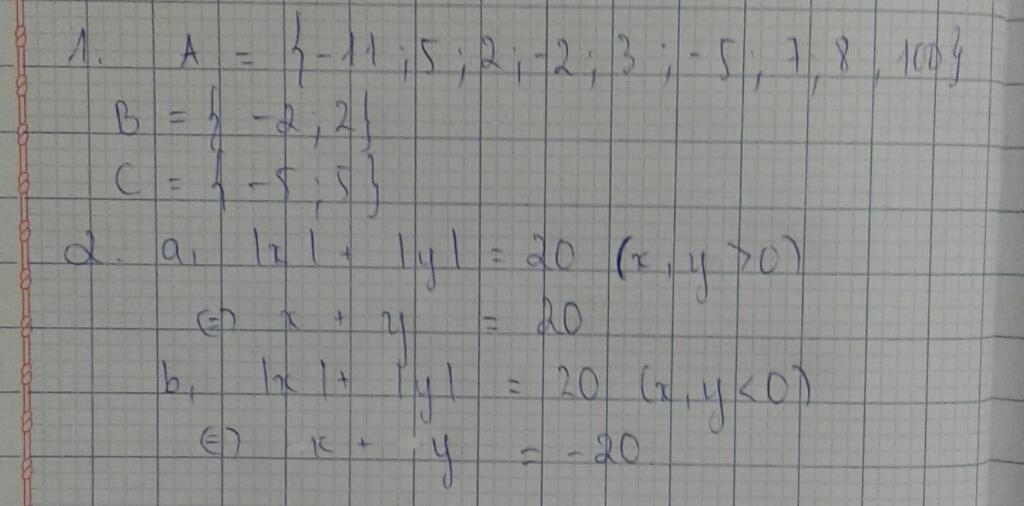 1. A = { -11 ; 5 ; 2 ; -2 ; 3 ; -5 ; 7 ; 8 , 100}
B = { -2 ; 2}
C = { -5 ; 5}
2. a, |x| + |y| = 20 (x, y > 0)
⇔ x + y = 20
b, |x| + |y| = 20 (x, y < 0)
⇔ x + y = -20